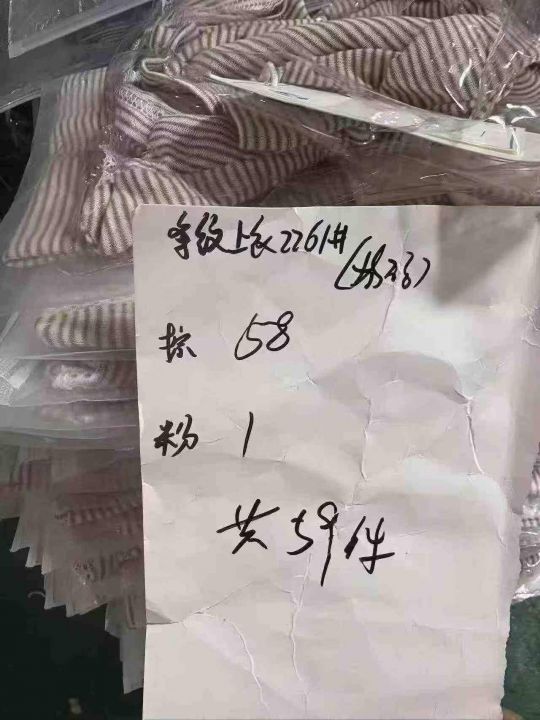 条纹上衣2261#
棕 58
粉 1
共59件